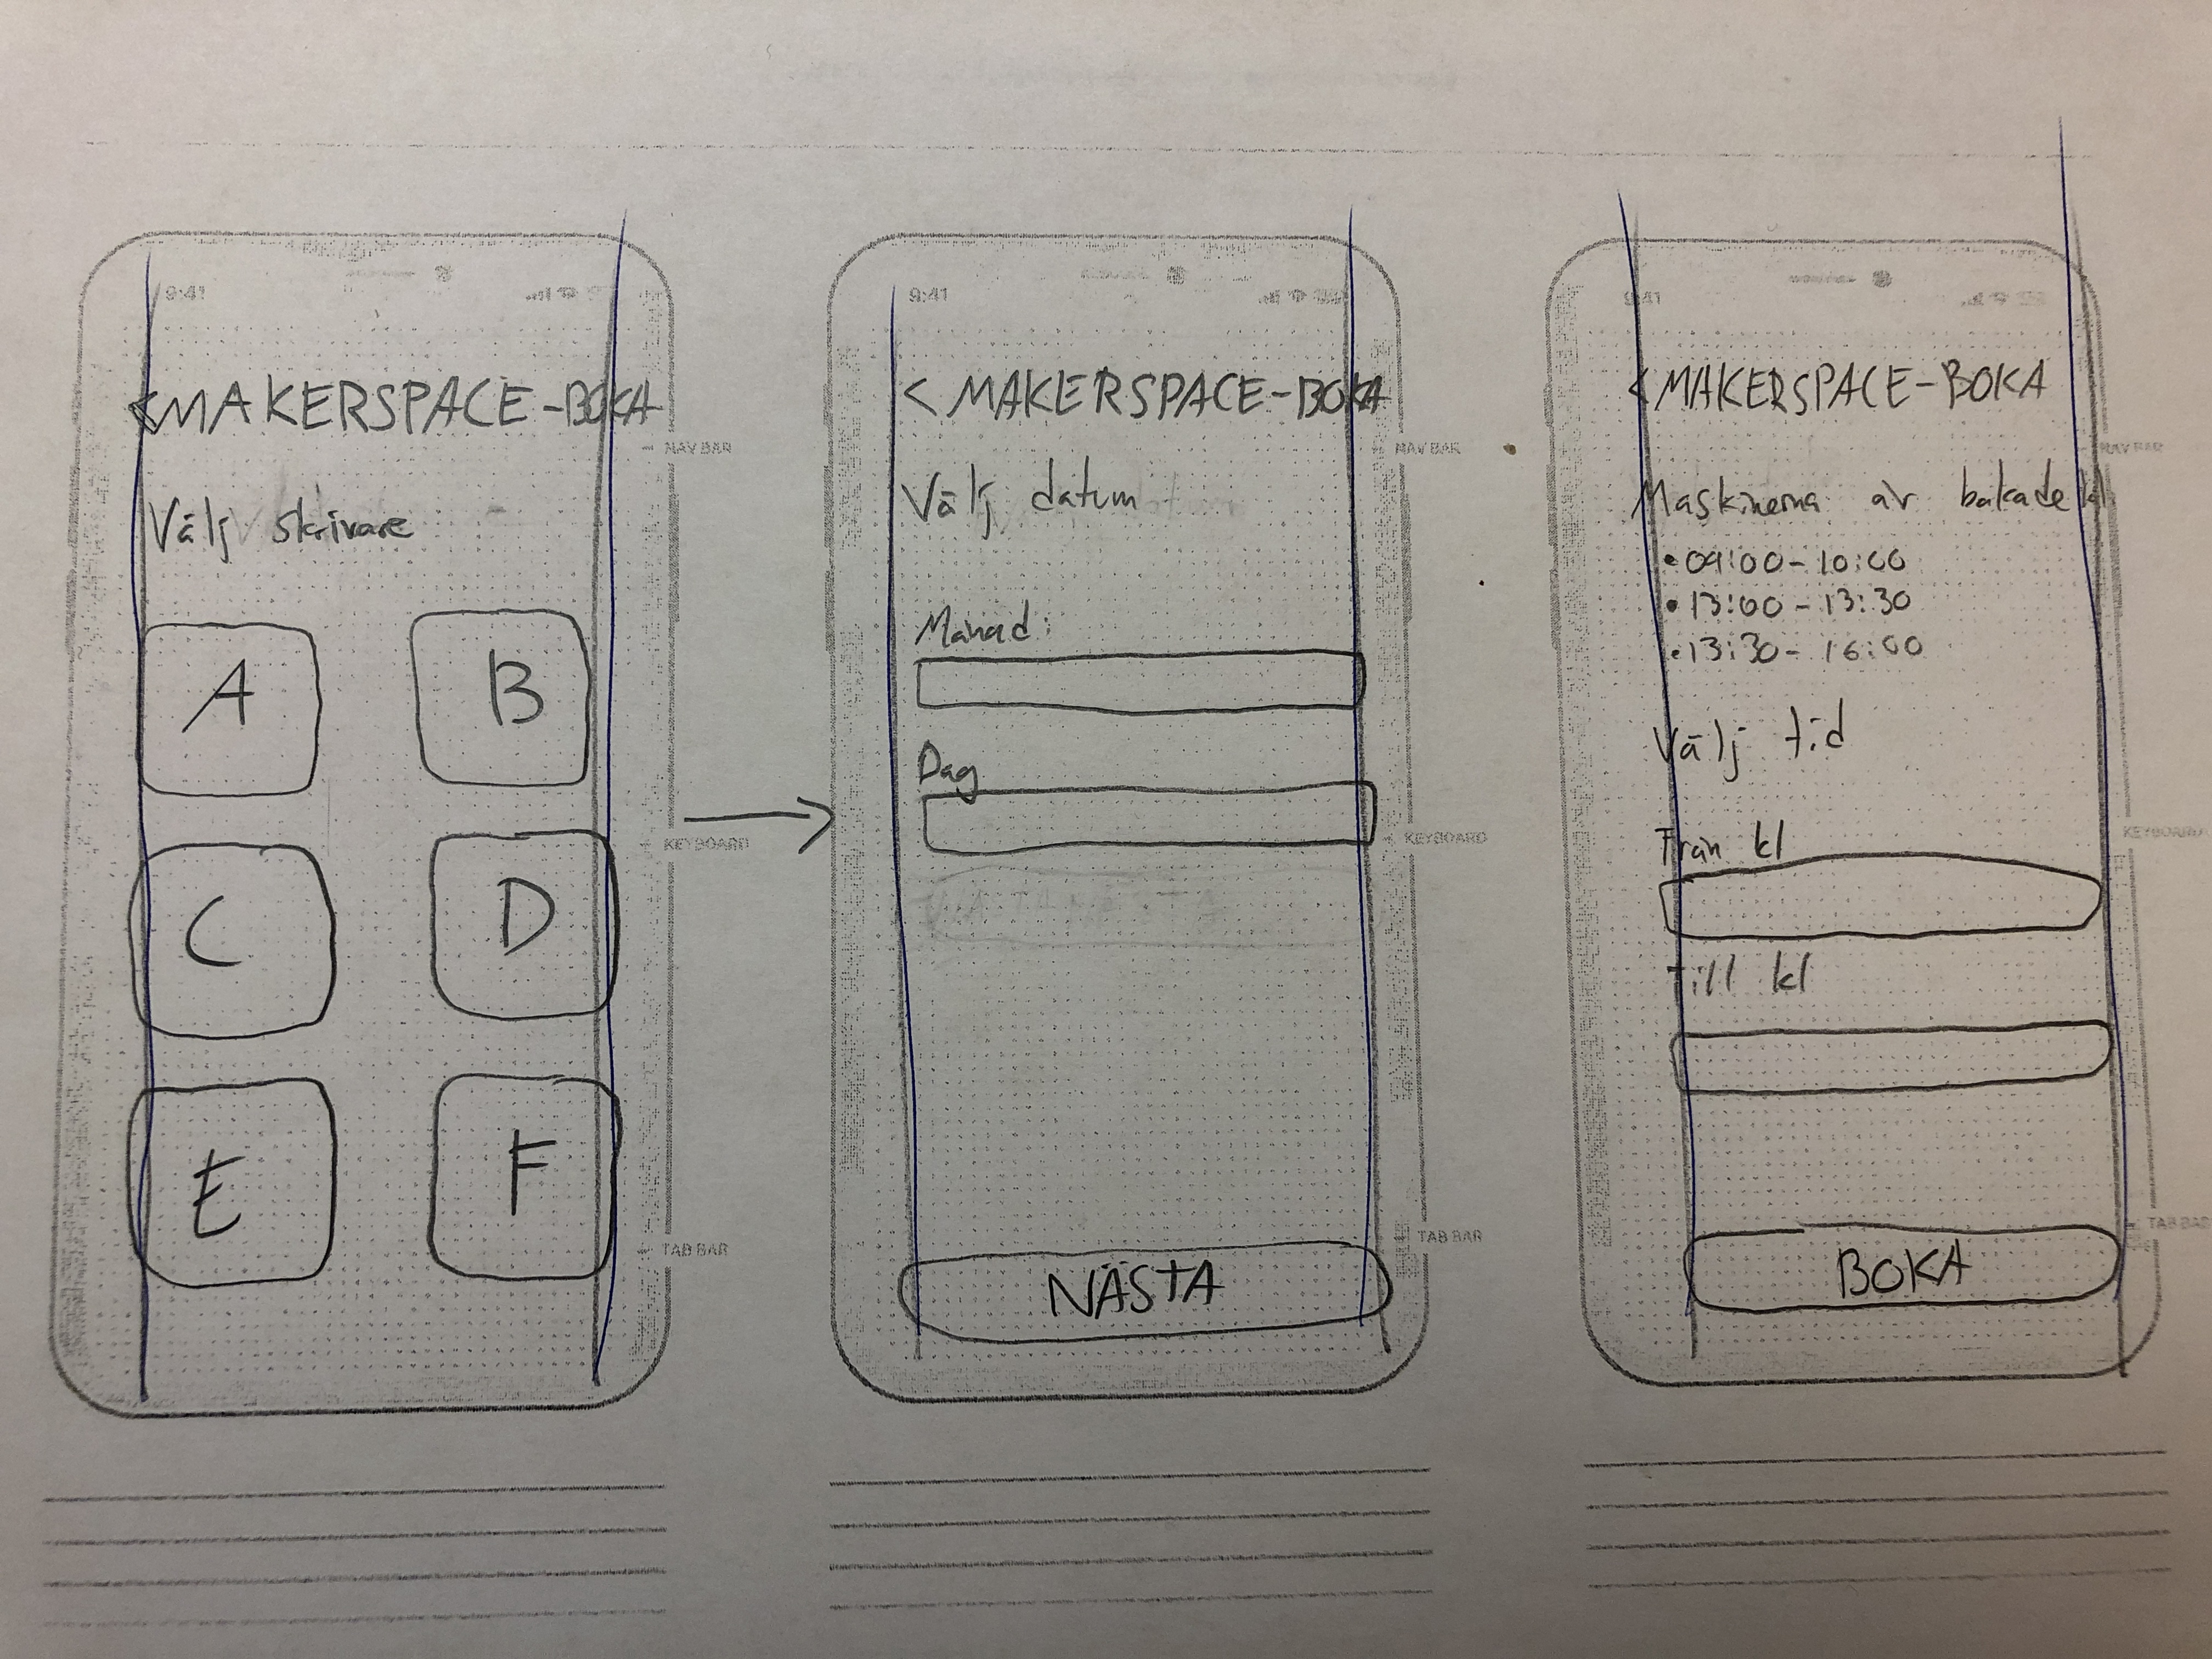 9:41
<MAKERSPACE-BOKA
Välj skrivare
A
B
C
D
E
F
NAV BAR
KEYBOARD
TAB BAR
9:41
<MAKERSPACE-BOKA
Välj datum
Månad:
Dag
NÄSTA
NAV BAR
KEYBOARD
TAB BAR
<MAKERSPACE-BOKA
Maskinerna är bokade kl
• 09:00 - 10:00
• 13:00 - 13:30
• 13:30 - 16:00
Välj tid
Från kl
Till kl
BOKA
NAV BAR
KEYBOARD
TAB BAR